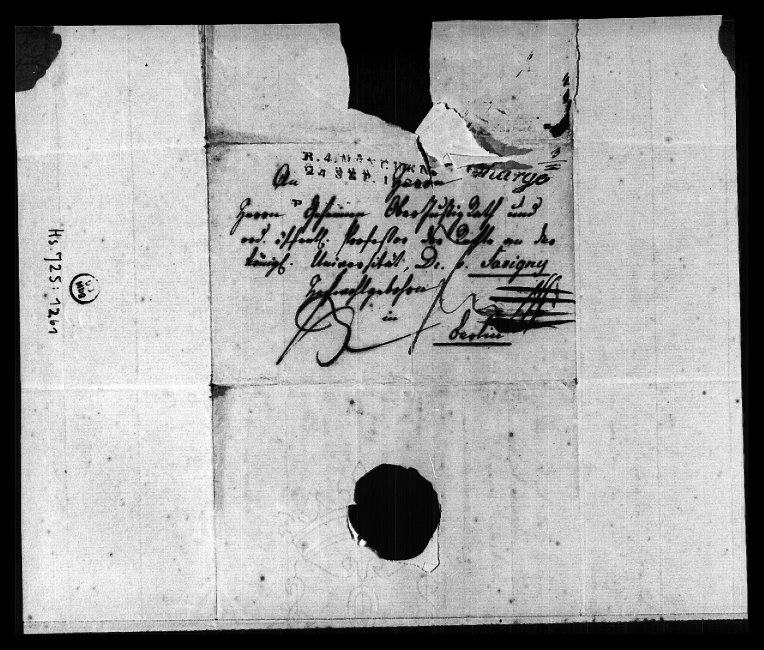 R. 4. MÜNCHEN
24 SEP. 1
Charge
An Herrn
Herrn Geheimen Oberjustizrath und
ord. öffentl. Professor der Rechte an der
königl. Universität, Dr. v. Savigny
Hochwohlgeboren
in
Berlin
Hs. 725: 1261